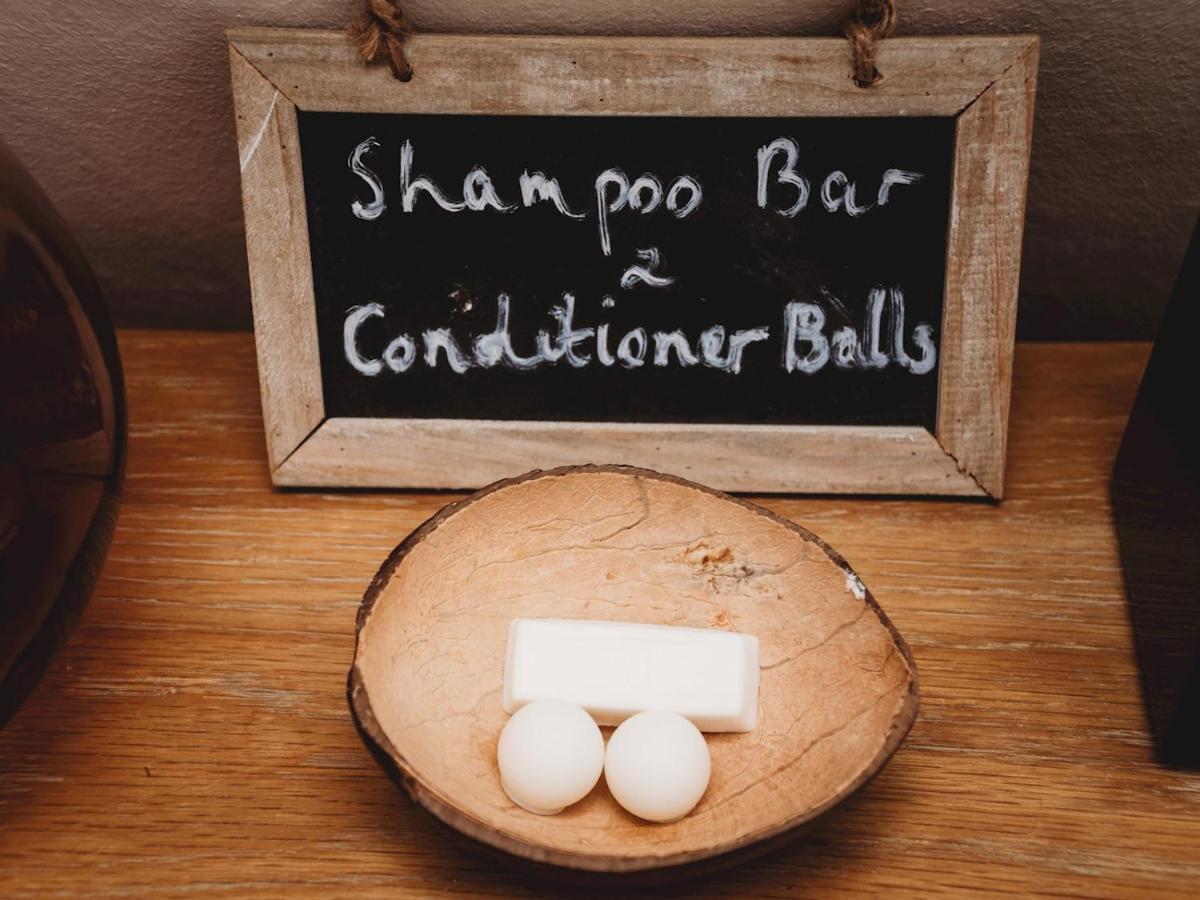 Shampoo Bar
2
Conditioner Balls